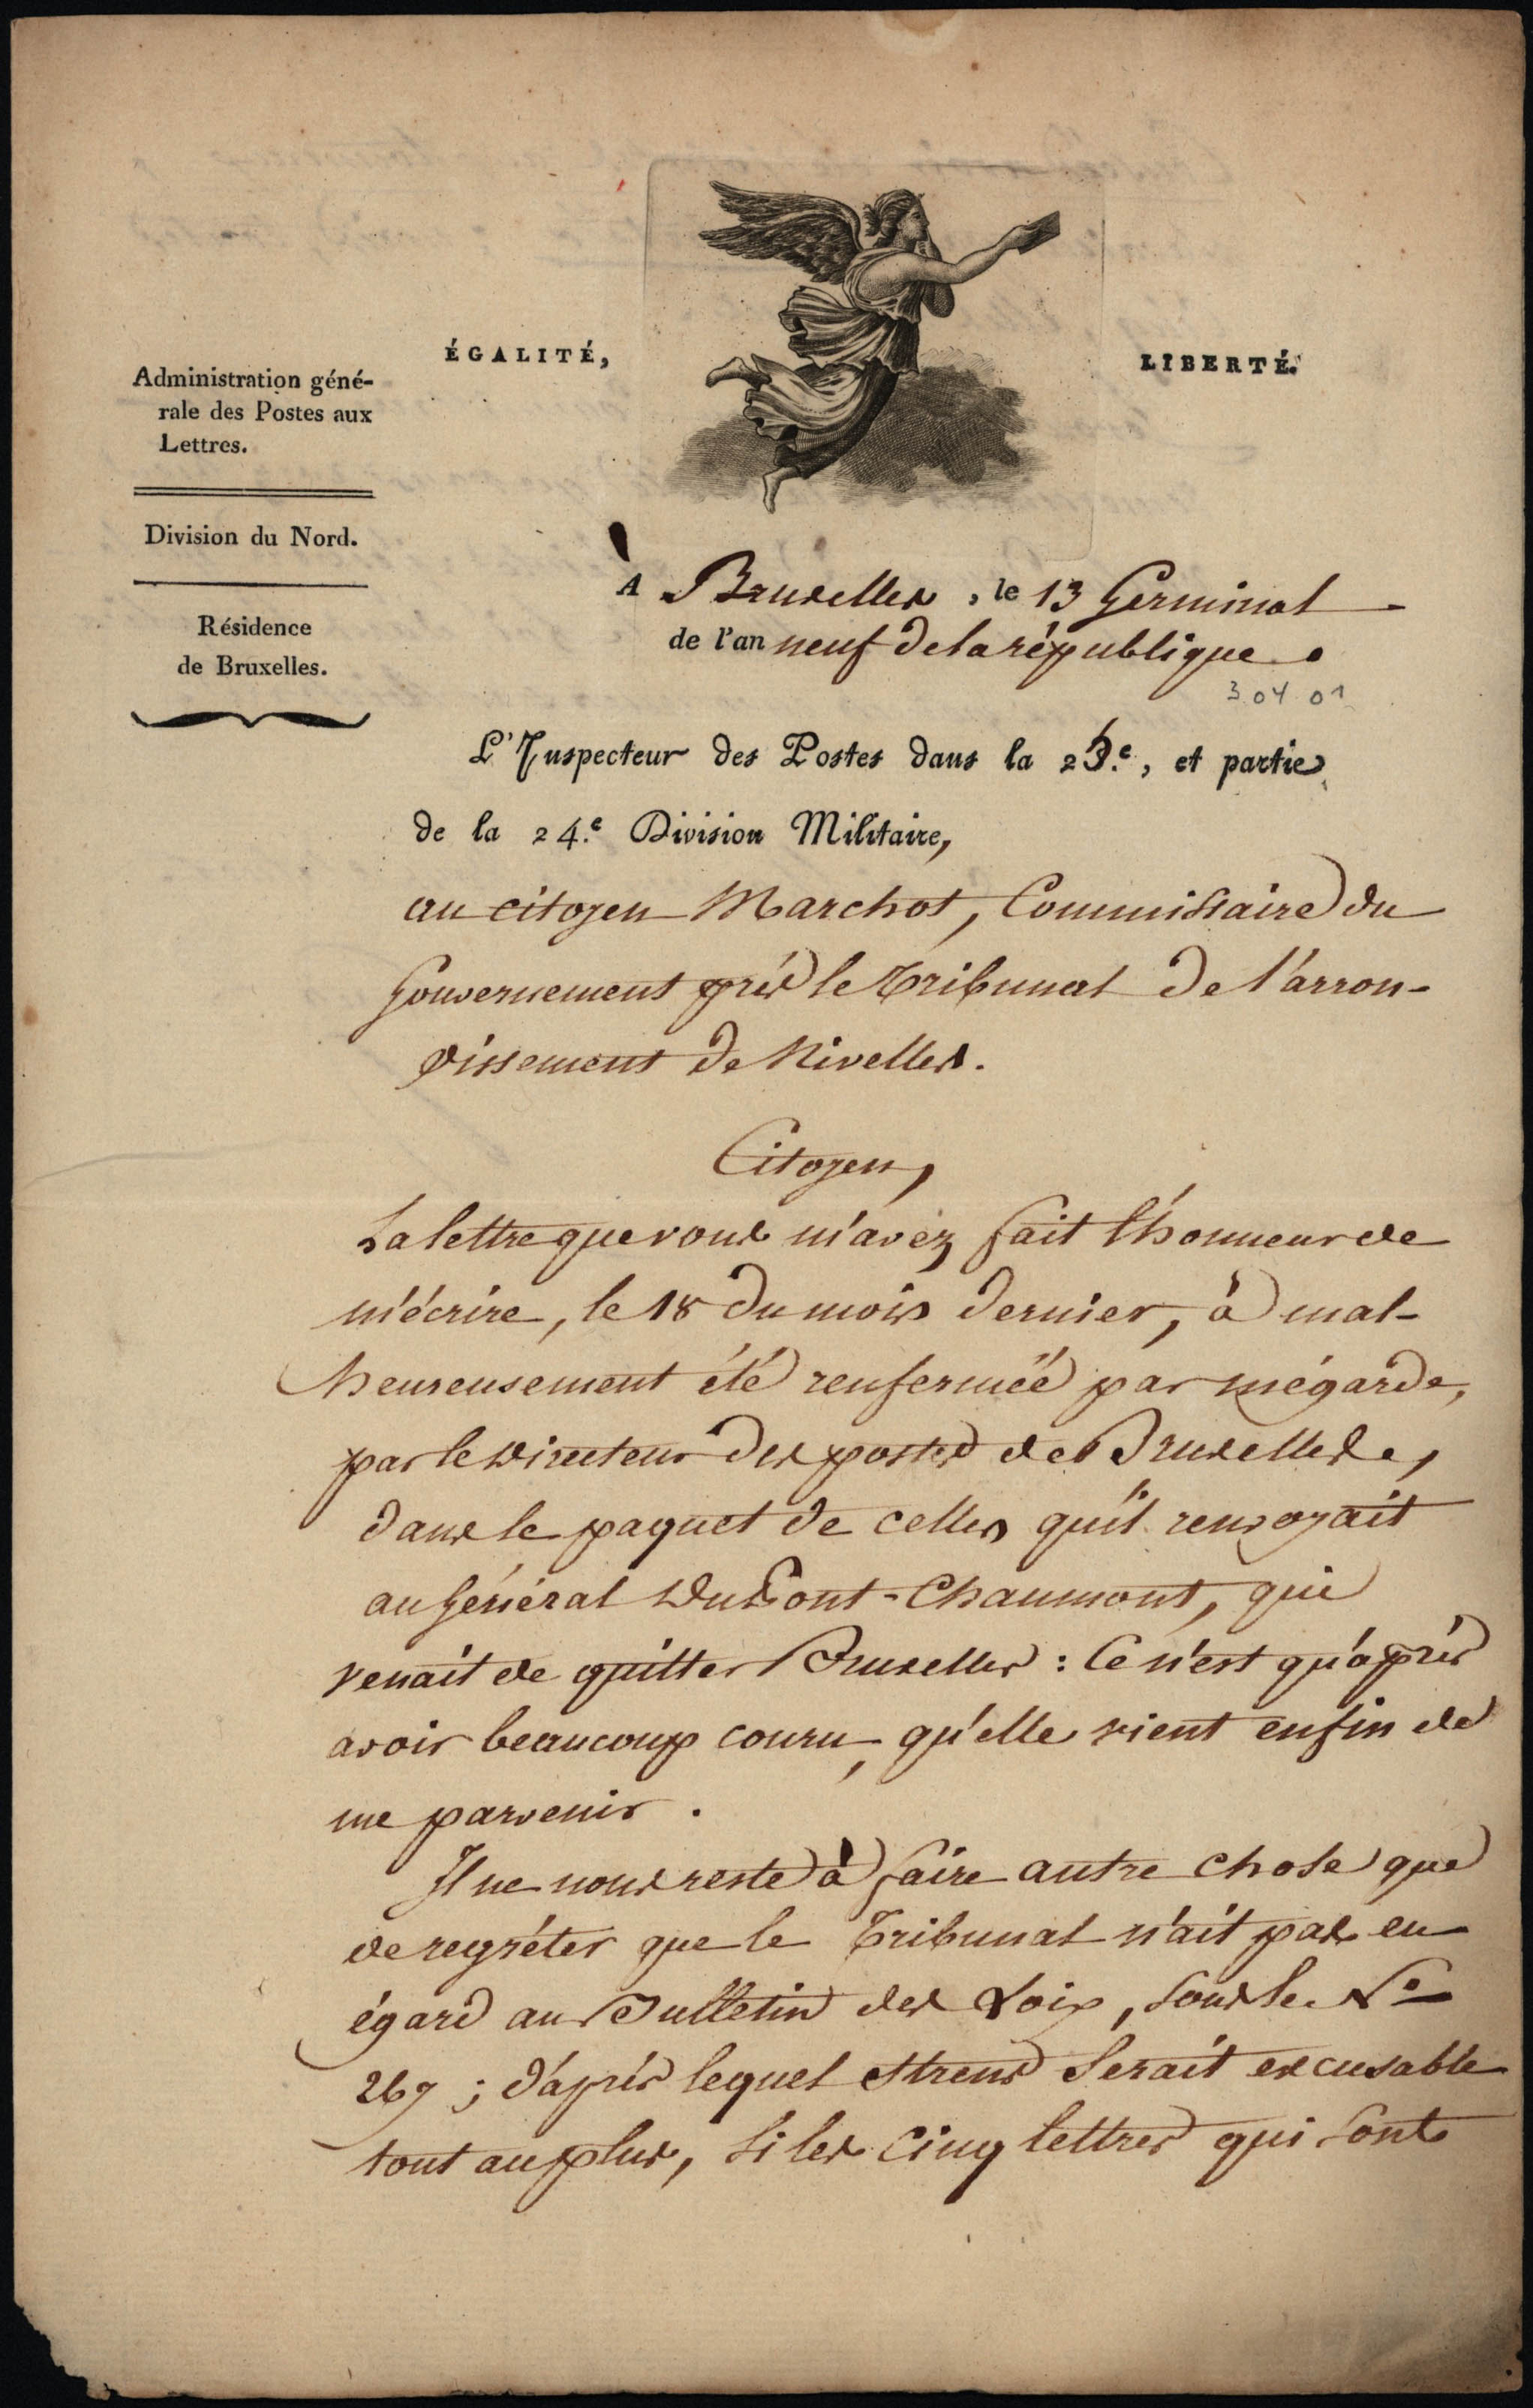 ÉGALITÉ,
LIBERTÉ.
Administration géné-
rale des Postes aux
Lettres.
Division du Nord.
Résidence
de Bruxelles.
À Bruxelles, le 13 Germinal
de l'an neuf de la république.
3 04 01
L'Inspecteur des Postes dans la 25.e, et partie
de la 24.e Division Militaire,
au citoyen Marchot, Commissaire du
Gouvernement près le Tribunal de l'arron-
dissement de Nivelles.
Citoyen,
La lettre que vous m'avez fait l'honneur de
m'écrire, le 18 du mois dernier, à mal-
heureusement été renfermée par mégarde,
par le Directeur des postes de Bruxelles,
dans le paquet de celles qu'il renvoyait
au Général DuPont-Chaumont, qui
venait de quitter Bruxelles : Ce n'est qu'après
avoir beaucoup couru, qu'elle vient enfin de
me parvenir.
Il ne nous reste à faire autre chose que
de regréter que le Tribunal n'ait pas eu
égard au Bulletin des Loix, sous le N.o
267 ; d'après lequel Strens serait excusable
tout au plus, si les cinq lettres qui sont